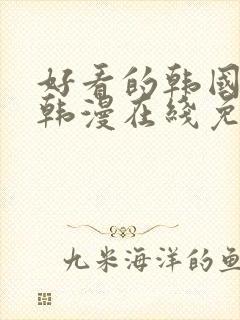 好看的韩国
韩漫在线免
九米海洋的鱼